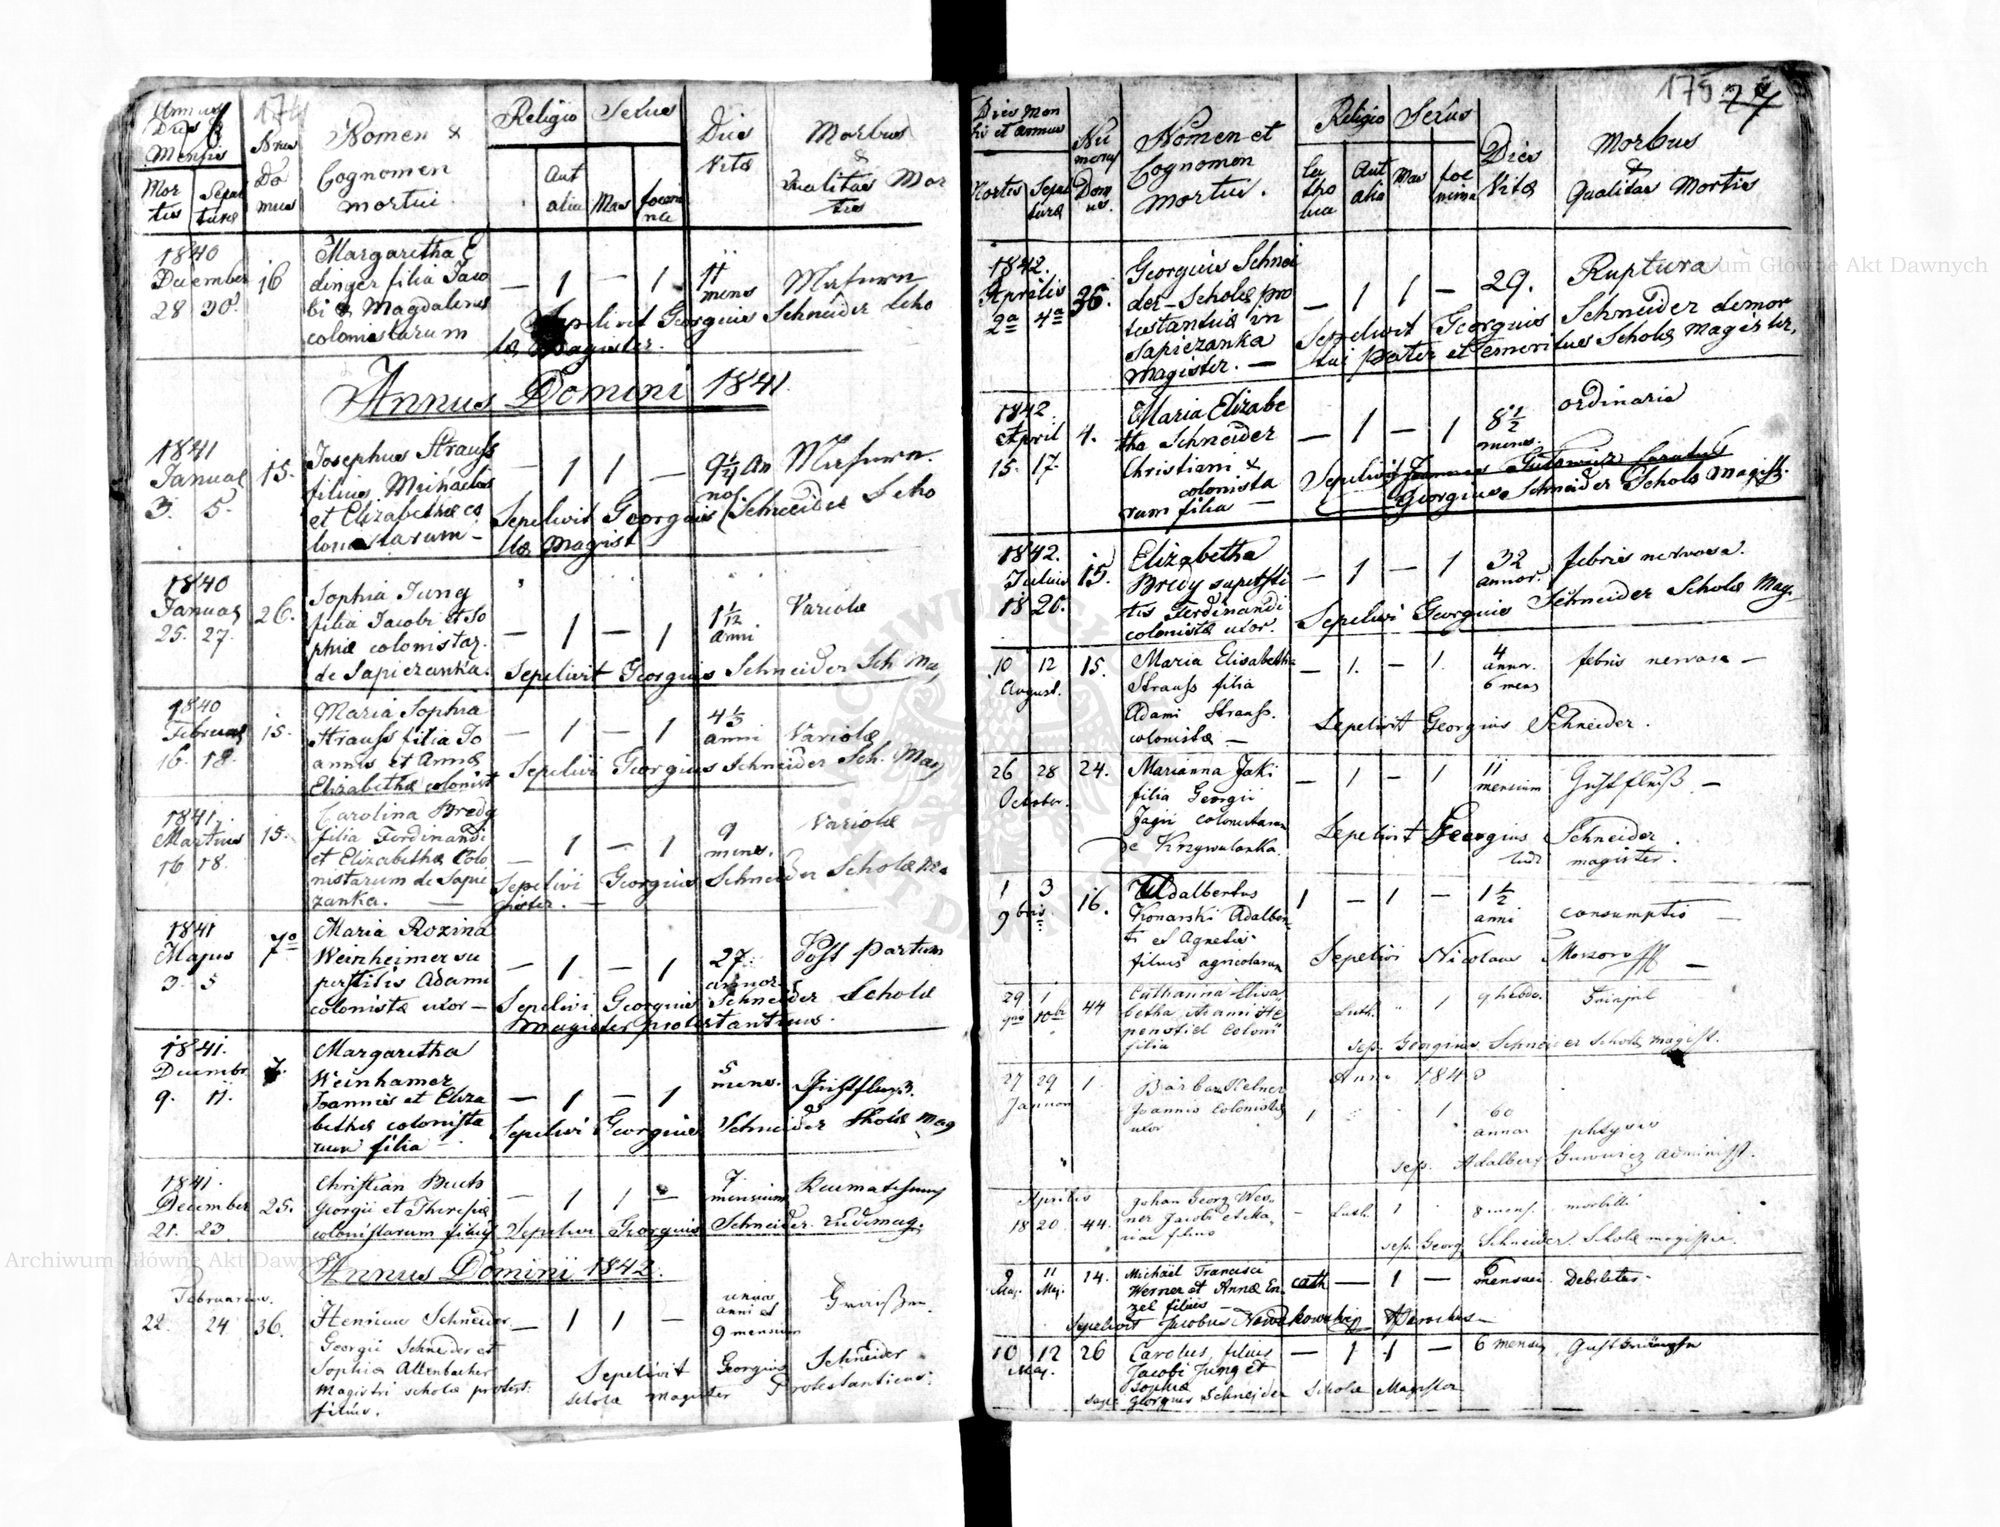 Annus
Dies &
Mensis
Mor
tis
Sepul
turae
174
Nrus
Do
mus
Nomen &
Cognomen
mortui
Religio
Aut
alia
Sexus
Mas
foemi
nea
Dies
Vitae
Morbus
&
Qualitas Mor
tis
1840
December
28 30
16
Margaretha E
dinger filia Jaco
bi & Magdalenae
colonistarum
— 1 — 1
11
mens
Sepelivit Georgius Schneider Scho
lae Magister.
Annus Domini 1841.
1841
Januar
3. 5.
15.
Josephus Strauss
filius Michaelis
et Elizabethae co
lonistarum —
— 1 1 —
9 1/4 An
nos
Sepelivit Georgius Schneider Scho
lae Magist
1840
Januar
25. 27.
26.
Sophia Jung
filia Jacobi et So
phiae colonistar.
de Sapiezanka.
— 1 — 1
1 1/12
anni
Variolae
Sepelivit Georgius Schneider Sch Ma
1840
Februar
16. 18.
15.
Maria Sophia
Strauss filia Jo
annis et Annae
Elizabethae colonist
— 1 — 1
4 1/3
anni
Variolae
Sepelivi Georgius Schneider Sch. Mag
1841.
Martius
16 18.
15.
Carolina Bredy
filia Ferdinandi
et Elizabethae Colo
nistarum de Sapie
zanka. —
— 1 — 1
9
mens.
Variolae
Sepelivi Georgius Schneider Scholae Ma
gister. —
1841
Majus
3. 5
7
Maria Rozina
Weinheimer su
perstitis Adami
colonistae uxor —
— 1 — 1
27.
annor.
Post partum
Sepelivi Georgius Schneider Scholae
Magister protestanticus.
1841.
Decembr
9. 11.
7.
Margaretha
Weinhamer
Joannis et Eliza
bethae colonista
rum filia —
— 1 — 1
5
mens.
Sepelivi Georgius Schneider Scholae Mag
1841.
December
21. 23
25.
Christian
Georgii et Theresiae
colonistarum filius
— 1 1 —
7
mensium
Sepelivi Georgius Schneider. Ludimag.
Annus Domini 1842.
Februarius.
22. 24
36.
Henricus Schneider
Georgii Schneider et
Sophia Altenbacher
Magistri scholae protest:
filius.
— 1 1 —
unius
anni et
9 mensium
Sepelivit Georgius Schneider
scholae magister Protestanticus.
175
77
Dies Men
sis et annus
Mortis
Sepul
turae
Nu
merus
Dom
us.
Nomen et
Cognomen
mortui.
Religio
Ca
tho
lica
Aut
alia
Sexus
Mas
foe
mina
Dies
Vitae
Morbus
&
Qualitas Mortis
1842.
Aprilis
2a 4a
36.
Georgius Schnei
der — Scholae pro
testantiae in
Sapiezanka
Magister. —
— 1 1 —
29.
Ruptura
Sepelivit Georgius Schneider demor
tui pater et emeritus Scholae Magister.
1842
April
15. 17.
4.
Maria Elizabe
tha Schneider
Christiani &
colonista
rum filia —
— 1 — 1
8 1/2
mens.
ordinaria
Sepelivit
Georgius Schneider Scholae Magist.
1842.
Julius
18 20.
15.
Elizabetha
Bredy superssti
tis Ferdinandi
colonistae uxor.
— 1 — 1
32
annor.
febris nervosa.
Sepelivi Georgius Schneider Scholae Mag.
10 12
August.
15.
Maria Elisabetha
Strauss filia
Adami Strauss.
colonistae —
— 1. — 1.
4
annor.
6 mens
febris nervosa —
Sepelivit Georgius Schneider.
26 28
October.
24.
Marianna Jaki
filia Georgii
Jagii colonistarum
de Krzywulanka.
— 1 — 1
11
mensium
—
Sepelivit Georgius Schneider
ludi magister.
1 3
9bris
16.
Adalbertus
Konarski Adalber
ti et Agnetis
filius agricolarum
1 — 1 —
1 1/2
anni
consumptio —
Sepelivi Nicolaus
29 1
9bris 10br
44
Catharina Elisa
betha Adami He
penstiel Coloni
filia
Luth. " 1
9 hebdo.
sep. Georgius Schneider Scholae Magist.
Anno 1843
27 29
Januar
1.
Barbara Kelner
Joannis Colonistae
uxor
1 1
60
annor
phtysis
sep. Adalbert Administ.
Aprilis
18 20
44.
Johan Georg Wer
ner Jacobi et Ma
riae filius
— Luth. 1
8 mens.
morbilli
sep. Georg Schneider. Scholae magister.
9 11
Maj. Maj.
14.
Michael Francisci
Werner et Annae En
zel filius —
cath — 1 —
6
mensium.
Debilitas.
Sepelivit Jacobus Nowakowski Parochus —
10 12
Maj.
26
Carolus, filius
Jacobi Jung et
Sophiae
— 1 1 —
6 mensiu
sepe: Georgius Schneider Scholae Magister
Archiwum Główne Akt Dawnych
Archiwum Główne Akt Dawnych